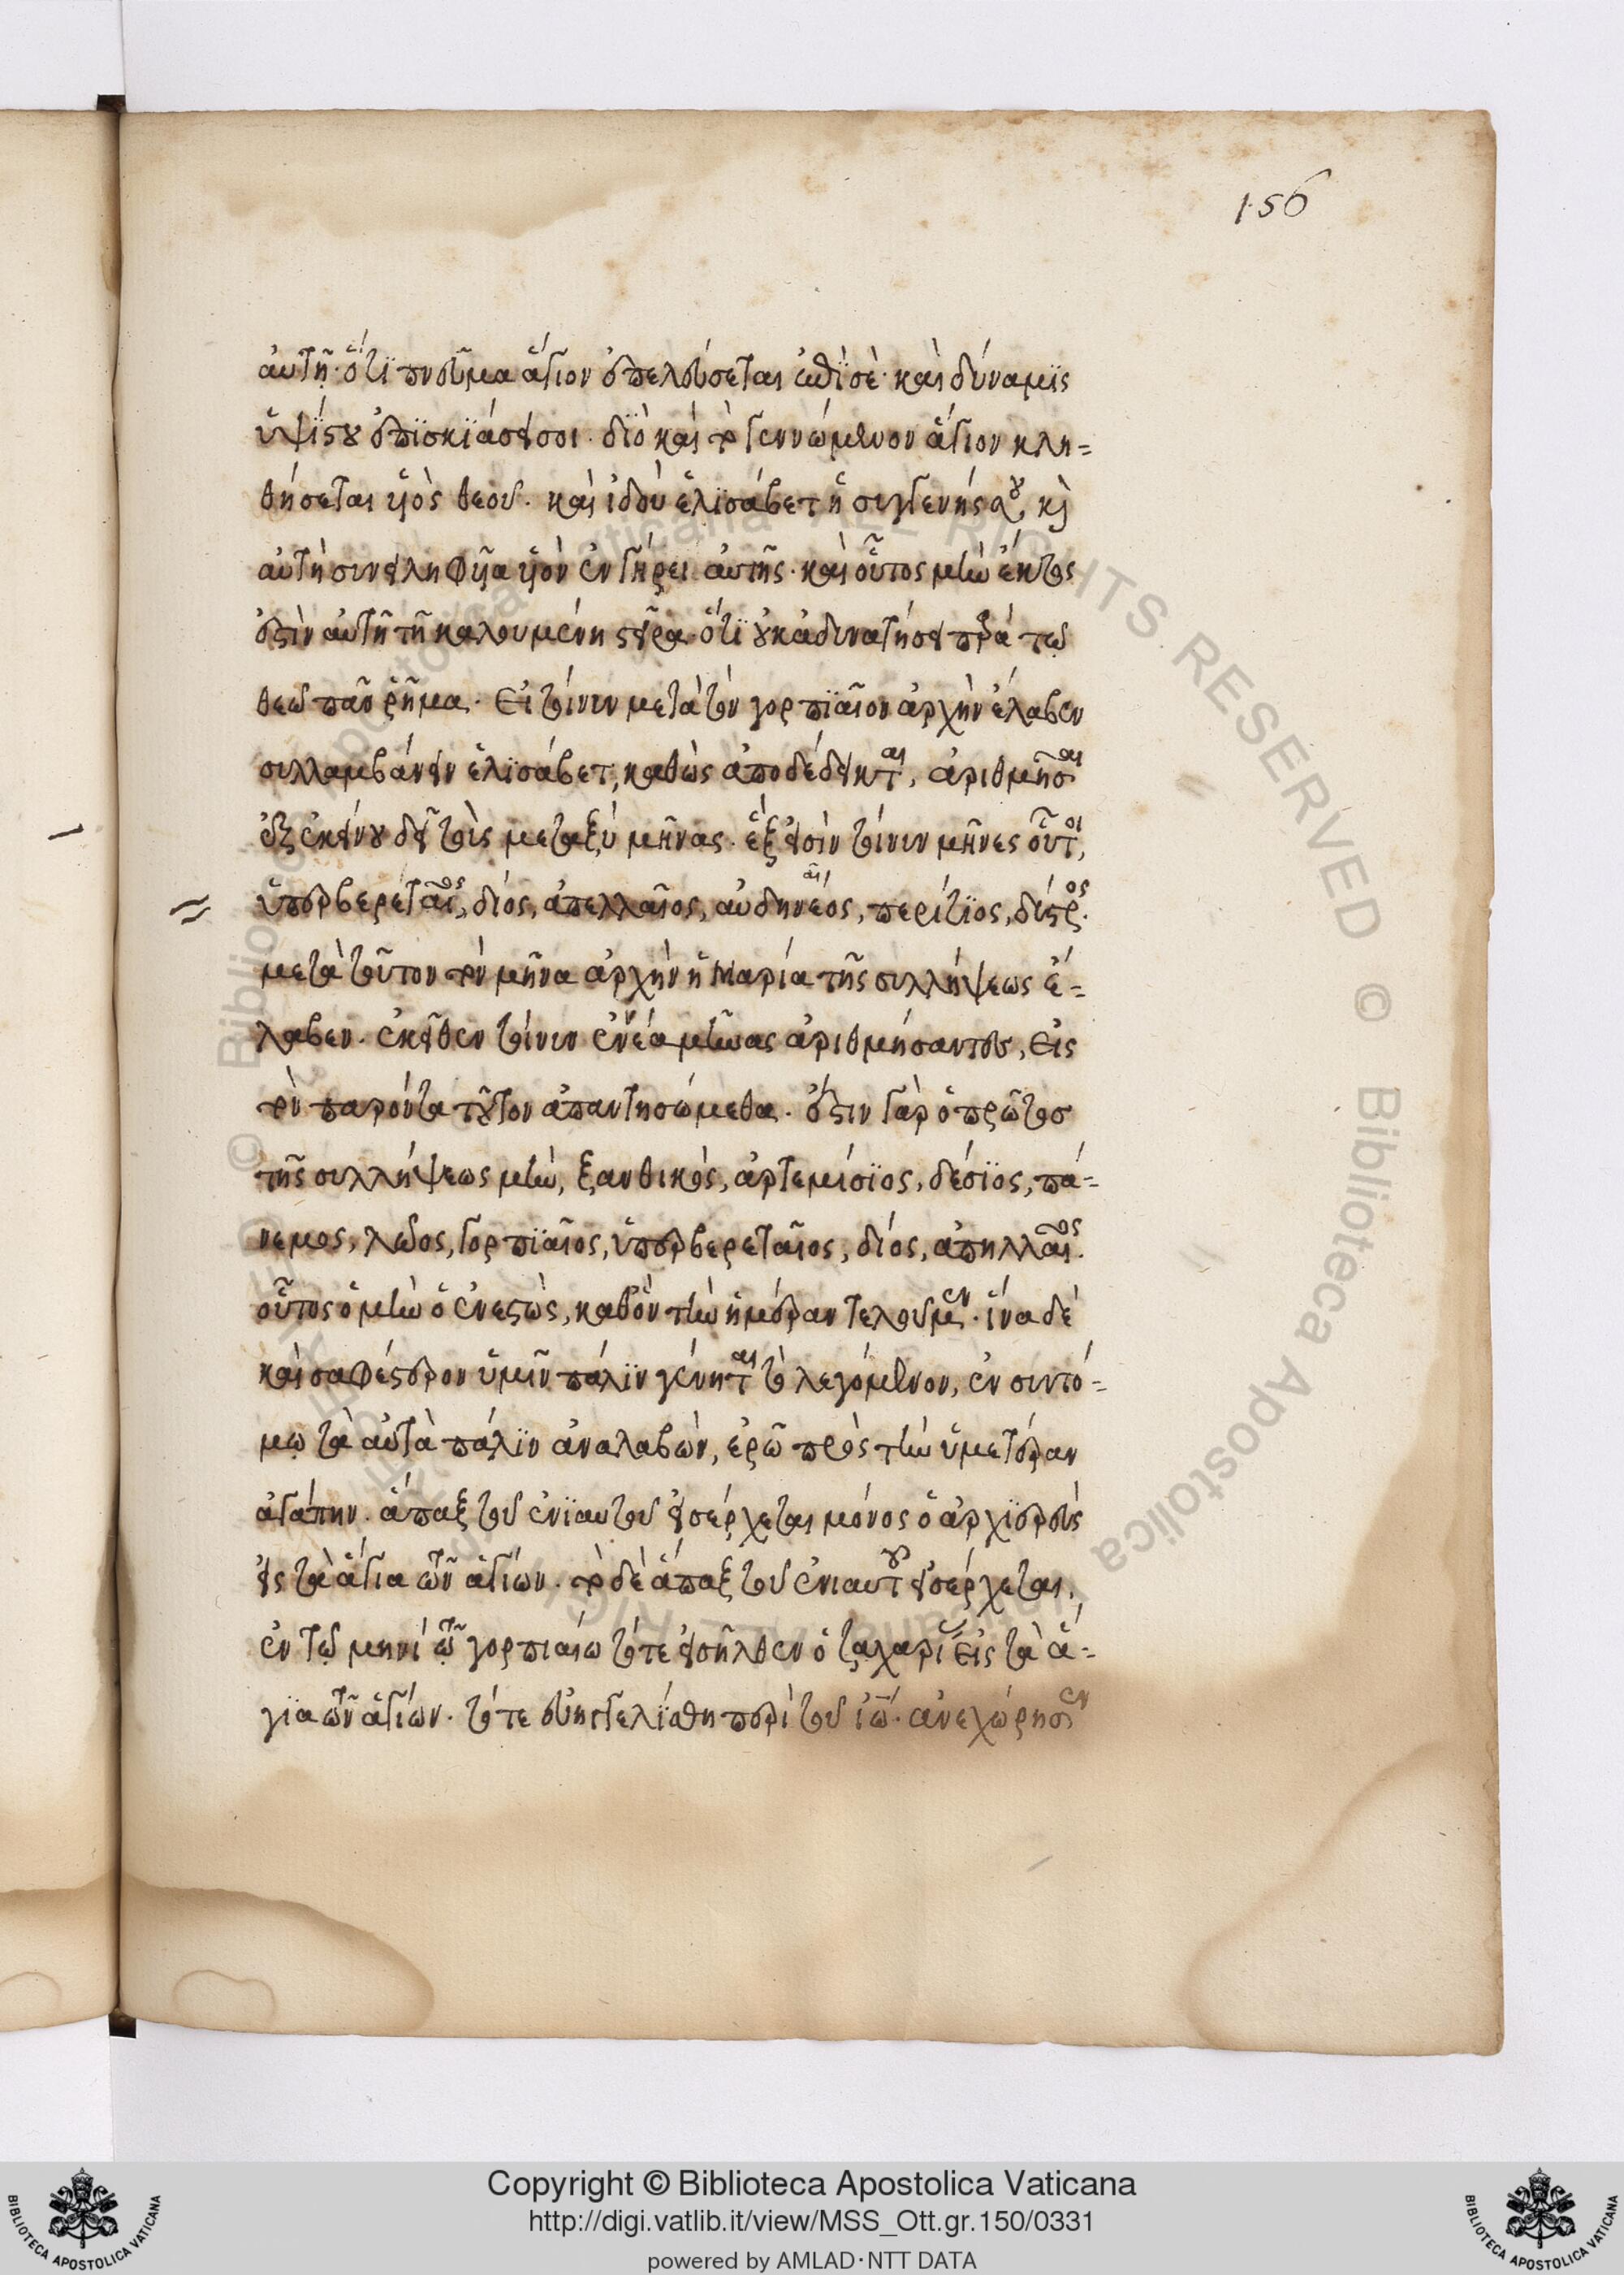 156
αὐτῆ· ὅτϊ πνεῦμα ἅγιον ἐπελεύσεται ἐπϊσὲ· καὶ δύναμϊς
ὑψίστου ἐπϊσκϊάσει σοι· δϊὸ καὶ τὸ γεννώμενον ἅγιον κλη-
θήσεται υἱὸς θεοῦ· καὶ ἰδοὺ ἐλϊσάβετ ἡ συγγενής σου, κὶ
αὐτὴ συνειληφυῖα υἱὸν ἐν γήρει αὐτῆς· καὶ οὗτος μὴν ἕκτος
ἐστὶν αὐτῆ τῆ καλουμένη στεῖρα· ὅτϊ οὐκ ἀδυνατήσει παρὰ τῷ
θεῷ πᾶν ῥῆμα. Εἰ τοίνυν μετὰ τὸν γορπϊαῖον ἀρχὴν ἔλαβεν
συλλαμβάνειν ἐλϊσάβετ, καθὼς ἀποδέδεικται, ἀριθμῆσαι
ἐξ ἐκείνου δεῖ τοὺς μεταξὺ μῆνας· ἓξ εἰσὶν τοίνυν μῆνες οὗτοι,
ὑπερβερεταῖος, δίος, ἀπελλαῖος, αὐδηνέος, περίτϊος, δύστρος·
αῖ
μετὰ τοῦτον τὸν μῆνα ἀρχὴν ἡ Μαρία τῆς συλλήψεως ἔ-
λαβεν· ἐκεῖθεν τοίνυν ἐνέα μῆνας ἀριθμήσαντες, Εἰς
τὸν παρόντα τοῦτον ἀπαντησώμεθα· ἔστιν γὰρ ὁ πρῶτος
τῆς συλλήψεως μὴν, ξανθικὸς, ἀρτεμίσϊος, δέσϊος, πά-
νεμος, λῶος, γορπϊαῖος, ὑπερβερεταῖος, δίος, ἀπηλλαῖος·
οὗτος ὁ μὴν ὁ ἐνεστὼς, καθὃν τὴν ἡμέραν τελοῦμεν· ἵνα δὲ
καὶ σαφέστερον ὑμῖν πάλϊν γένηται τὸ λεγόμενον, ἐν συντό-
μῳ τὰ αὐτὰ πάλϊν ἀναλαβὼν, ἐρῶ πρὸς τὴν ὑμετέραν
ἀγάπην· ἅπαξ τοῦ ἐνϊαυτοῦ εἰσέρχεται μόνος ὁ ἀρχϊερεὺς
εἰς τὰ ἅγια τῶν ἁγίων· τὸ δὲ ἅπαξ τοῦ ἐνιαυτοῦ εἰσέρχεται,
ἐν τῷ μηνὶ τῷ γορπιαίω τότε εἰσῆλθεν ὁ ζαχαρίας Εἰς τὰ ἅ-
γϊα τῶν ἁγίων· τότε εὐηγγελίσθη περὶ τοῦ ἰῶ· ἀνεχώρησεν
Copyright © Biblioteca Apostolica Vaticana
http://digi.vatlib.it/view/MSS_Ott.gr.150/0331
powered by AMLAD·NTT DATA